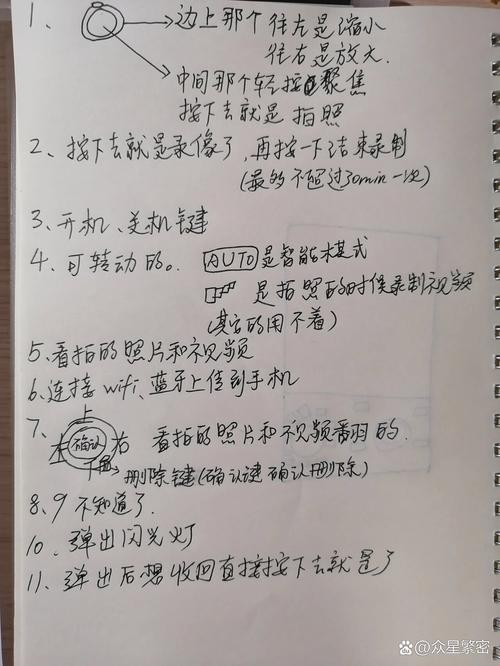 1、边上那个往左是缩小
往右是放大.
中间那个轻按聚焦
按下去就是拍照
2、按下去就是录像了,再按一下结束录制
(最多不超过30min一次)
3、开机、关机键
4、可转动的。AUTO是智能模式
是拍照的时候录制视频
(其它的用不着)
5、看拍的照片和视频
6、连接wifi、蓝牙上传到手机
7、上
左 确认 右 看拍的照片和视频翻的.
下 删除键(确认键确认删除)
8、9不知道了.
10、弹出闪光灯
11、弹出后想收回直接按下去就是了
众星繁密